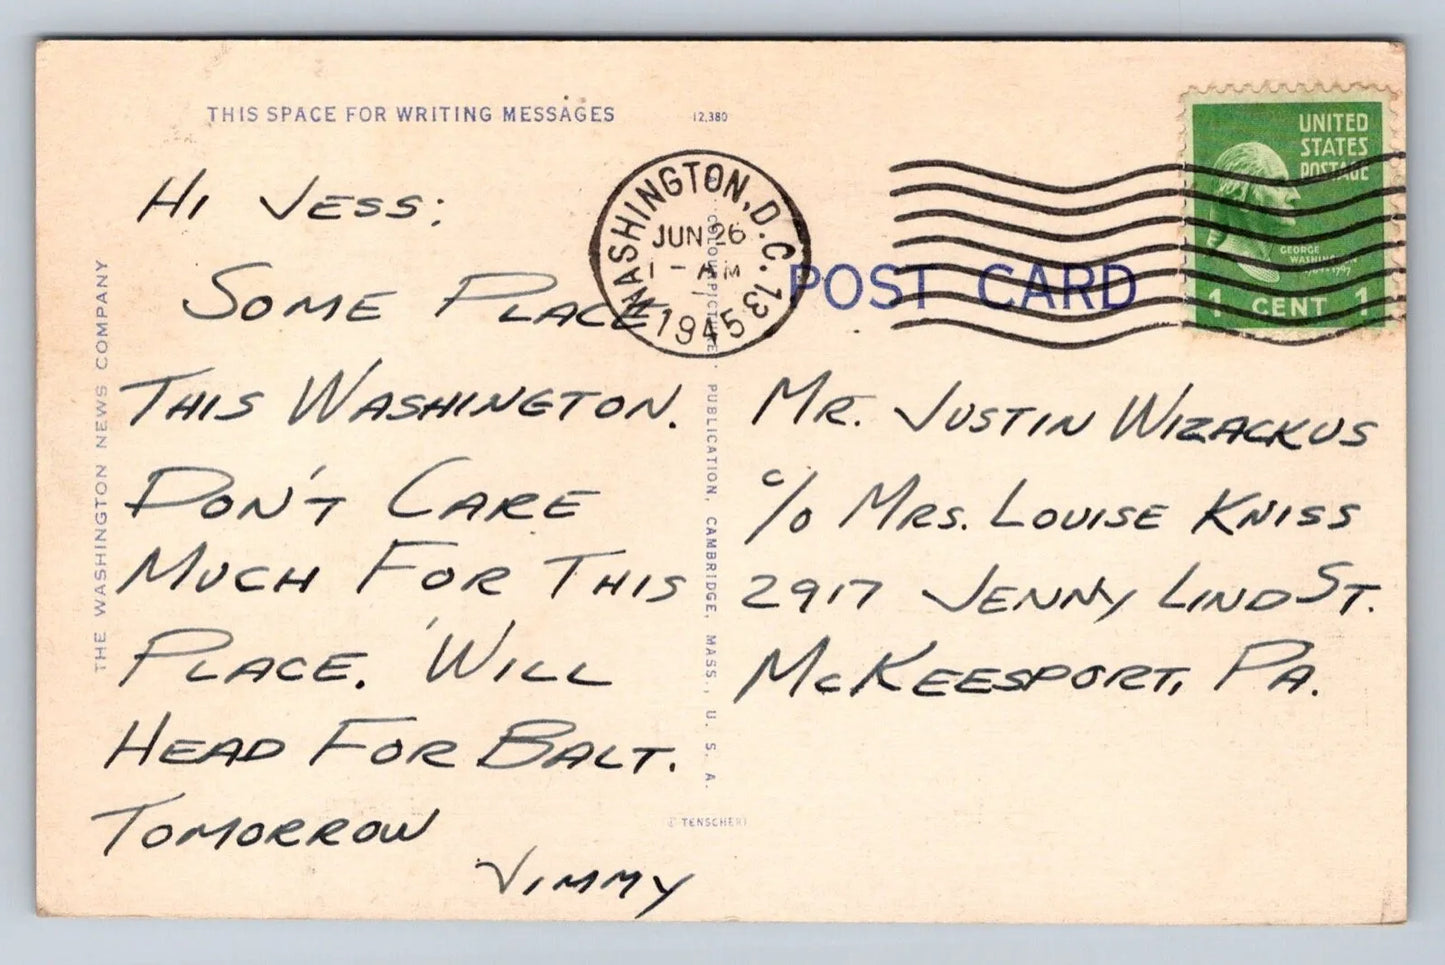 THIS SPACE FOR WRITING MESSAGES
12,380
HI JESS:
SOME PLACE
THIS WASHINGTON.
DON'T CARE
MUCH FOR THIS
PLACE. WILL
HEAD FOR BALT.
TOMORROW
JIMMY
THE WASHINGTON NEWS COMPANY
WASHINGTON, D.C. 13
JUN 26
1 - AM
1945
PUBLICATION, CAMBRIDGE, MASS., U. S. A.
TENSCHERT
POST CARD
UNITED
STATES
POSTAGE
GEORGE
WASHINGTON
1 CENT 1
MR. JUSTIN WIZACKUS
c/o MRS. LOUISE KNISS
2917 JENNY LIND ST.
McKEESPORT, PA.